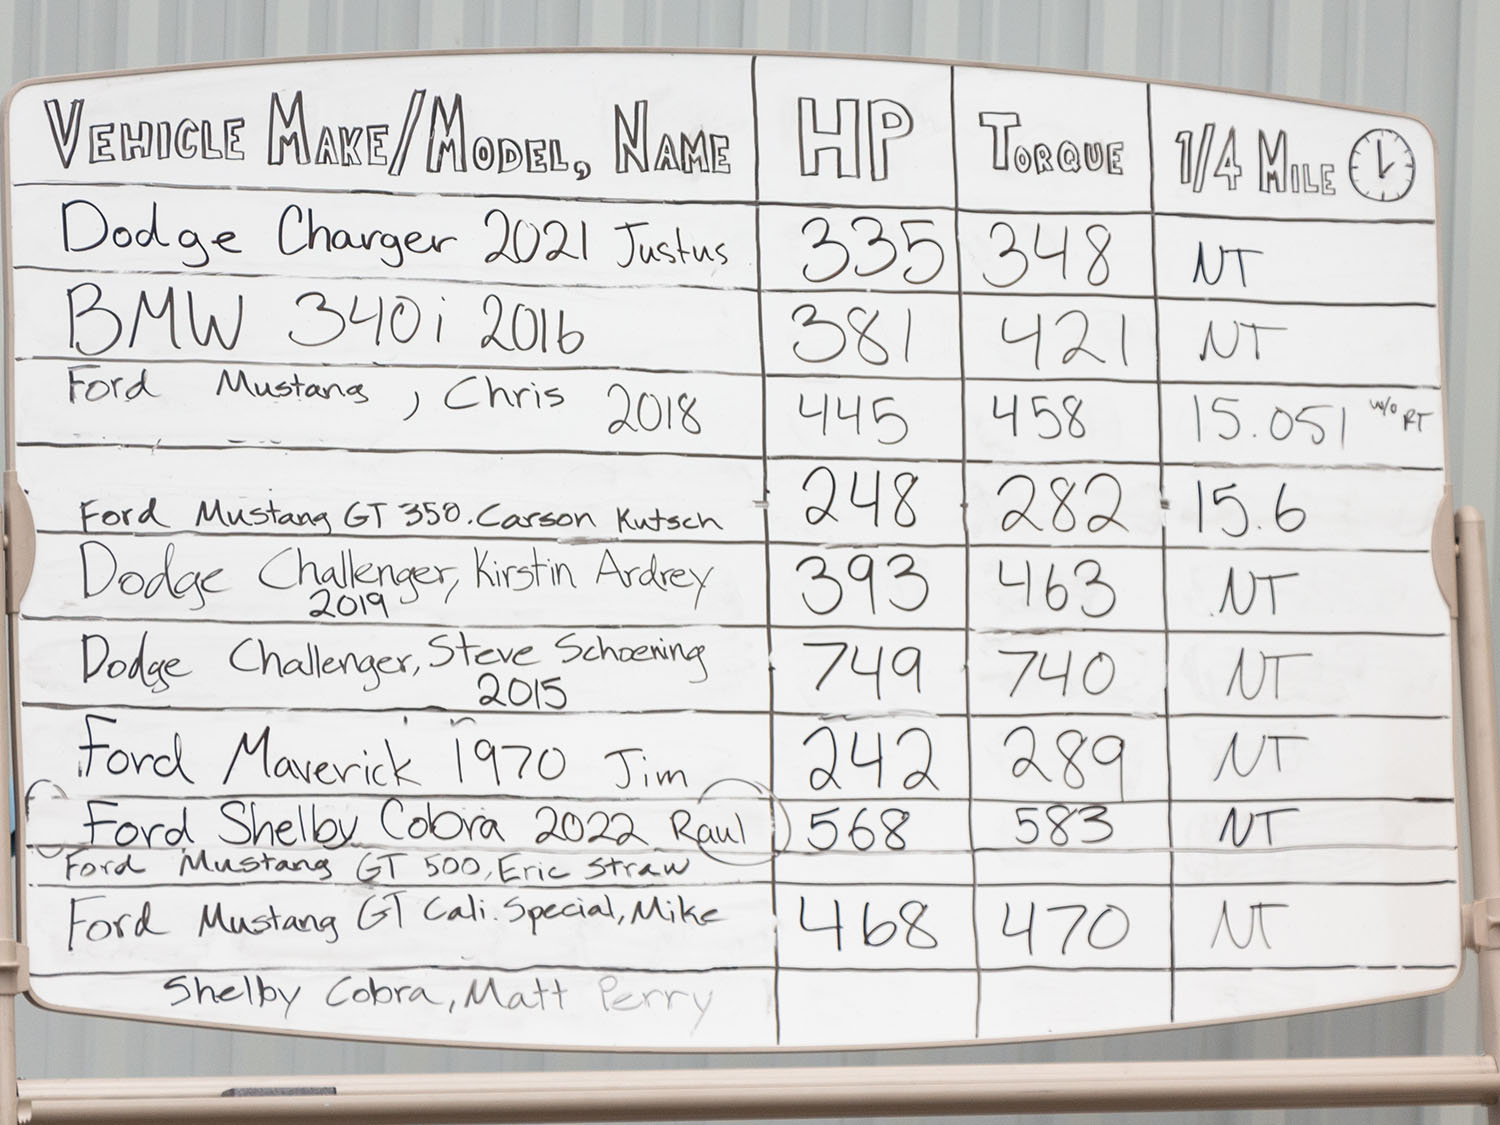 VEHICLE MAKE/MODEL, NAME HP TORQUE 1/4 MILE
Dodge Charger 2021 Justus 335 348 NT
BMW 340i 2016 381 421 NT
Ford Mustang, Chris 2018 445 458 15.051 w/o RT
Ford Mustang GT 350. Carson Kutsch 248 282 15.6
Dodge Challenger, Kirstin Ardrey 393 463 NT
2019
Dodge Challenger, Steve Schoening 749 740 NT
2015
Ford Maverick 1970 Jim 242 289 NT
Ford Shelby Cobra 2022 Raul 568 583 NT
Ford Mustang GT 500, Eric Straw
Ford Mustang GT Cali. Special, Mike 468 470 NT
Shelby Cobra, Matt Perry